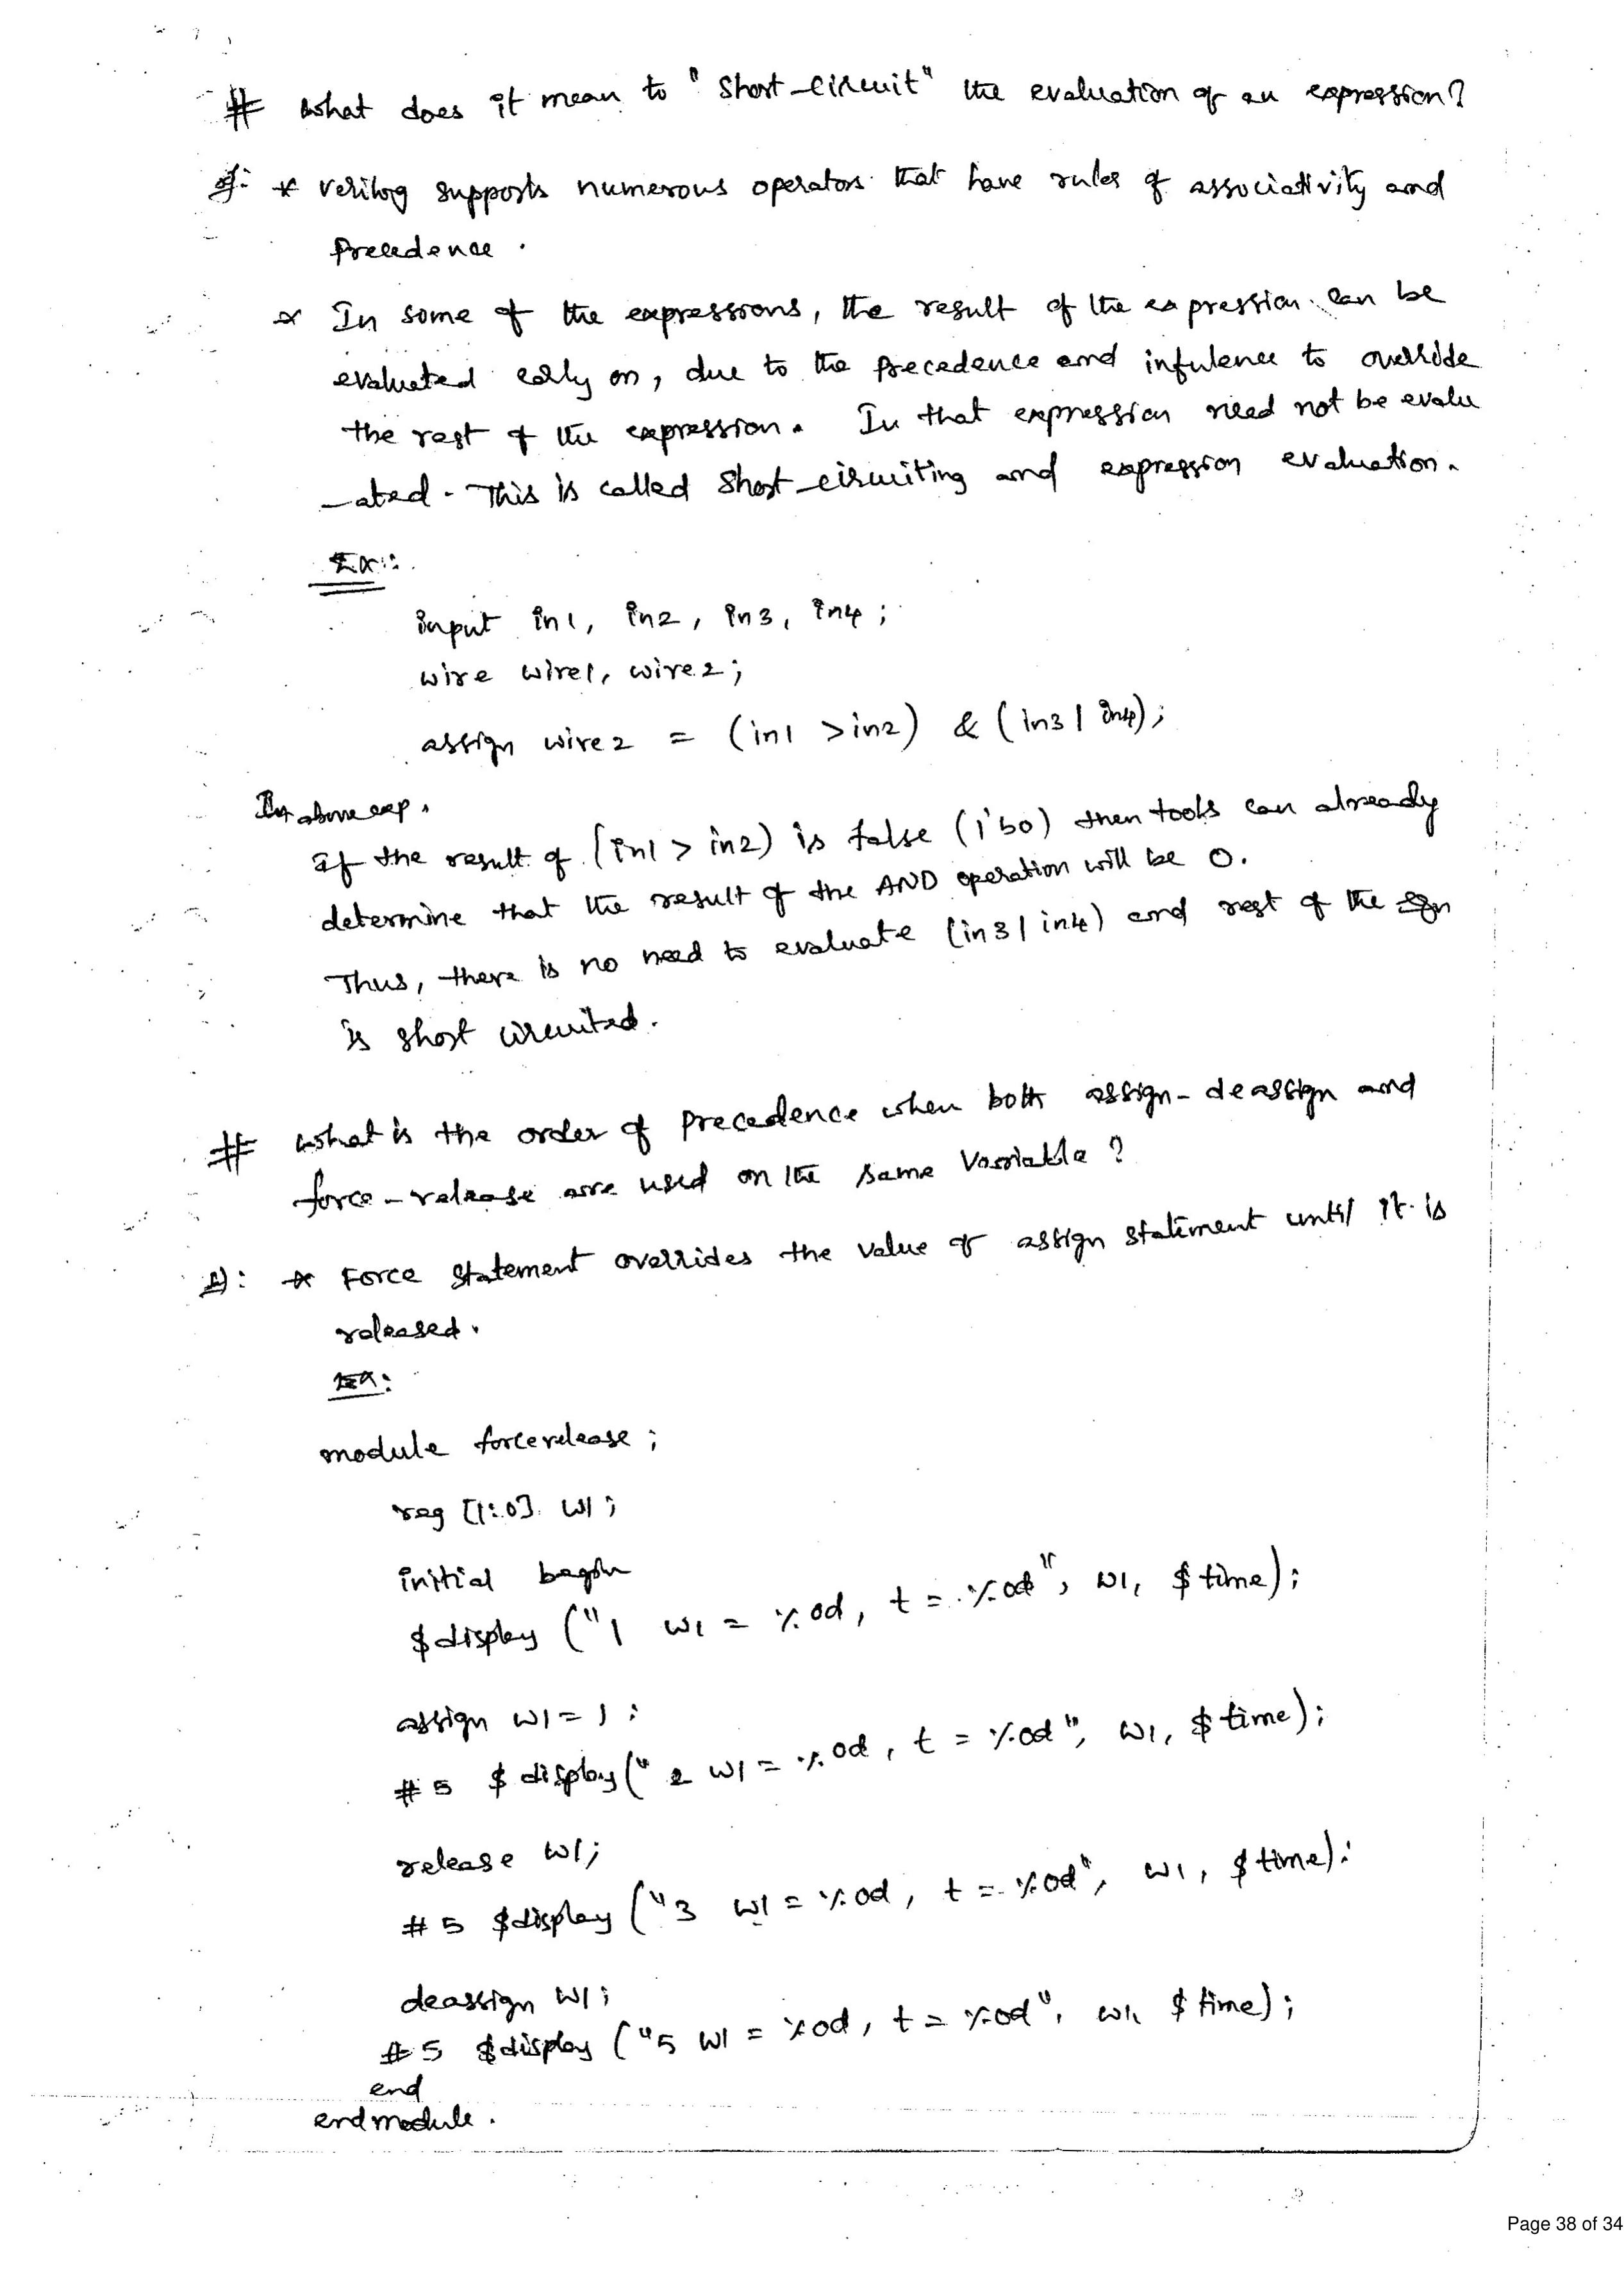 # what does it mean to "short-circuit" the evaluation of an expression?
* verilog supports numerous operators that have rules of associativity and
precedence.
* In some of the expressions, the result of the expression can be
evaluated early on, due to the precedence and infulence to override
the rest of the expression. In that expression need not be evalu
-ated. This is called short-circuiting and expression evaluation.
Ex:
input in1, in2, in3, in4;
wire wire1, wire2;
assign wire2 = (in1 >in2) & (in3 | in4);
In above exp.
If the result of (in1 > in2) is false (1'b0) then tools can already
determine that the result of the AND operation will be 0.
Thus, there is no need to evaluate (in3 | in4) and rest of the Eqn
is short circuited.
# what is the order of precedence when both assign-deassign and
force-release are used on the same variable?
* Force statement overrides the value of assign statement until it is
released.
Ex:
module forcerelease;
reg [1:0] w1;
initial begin
$display ("1 w1 = %0d, t = %0d", w1, $time);
assign w1 = 1;
#5 $display("2 w1 = %0d, t = %0d", w1, $time);
release w1;
#5 $display ("3 w1 = %0d, t = %0d", w1, $time);
deassign w1;
#5 $display ("5 w1 = %0d, t = %0d", w1, $time);
end
endmodule.
Page 38 of 34